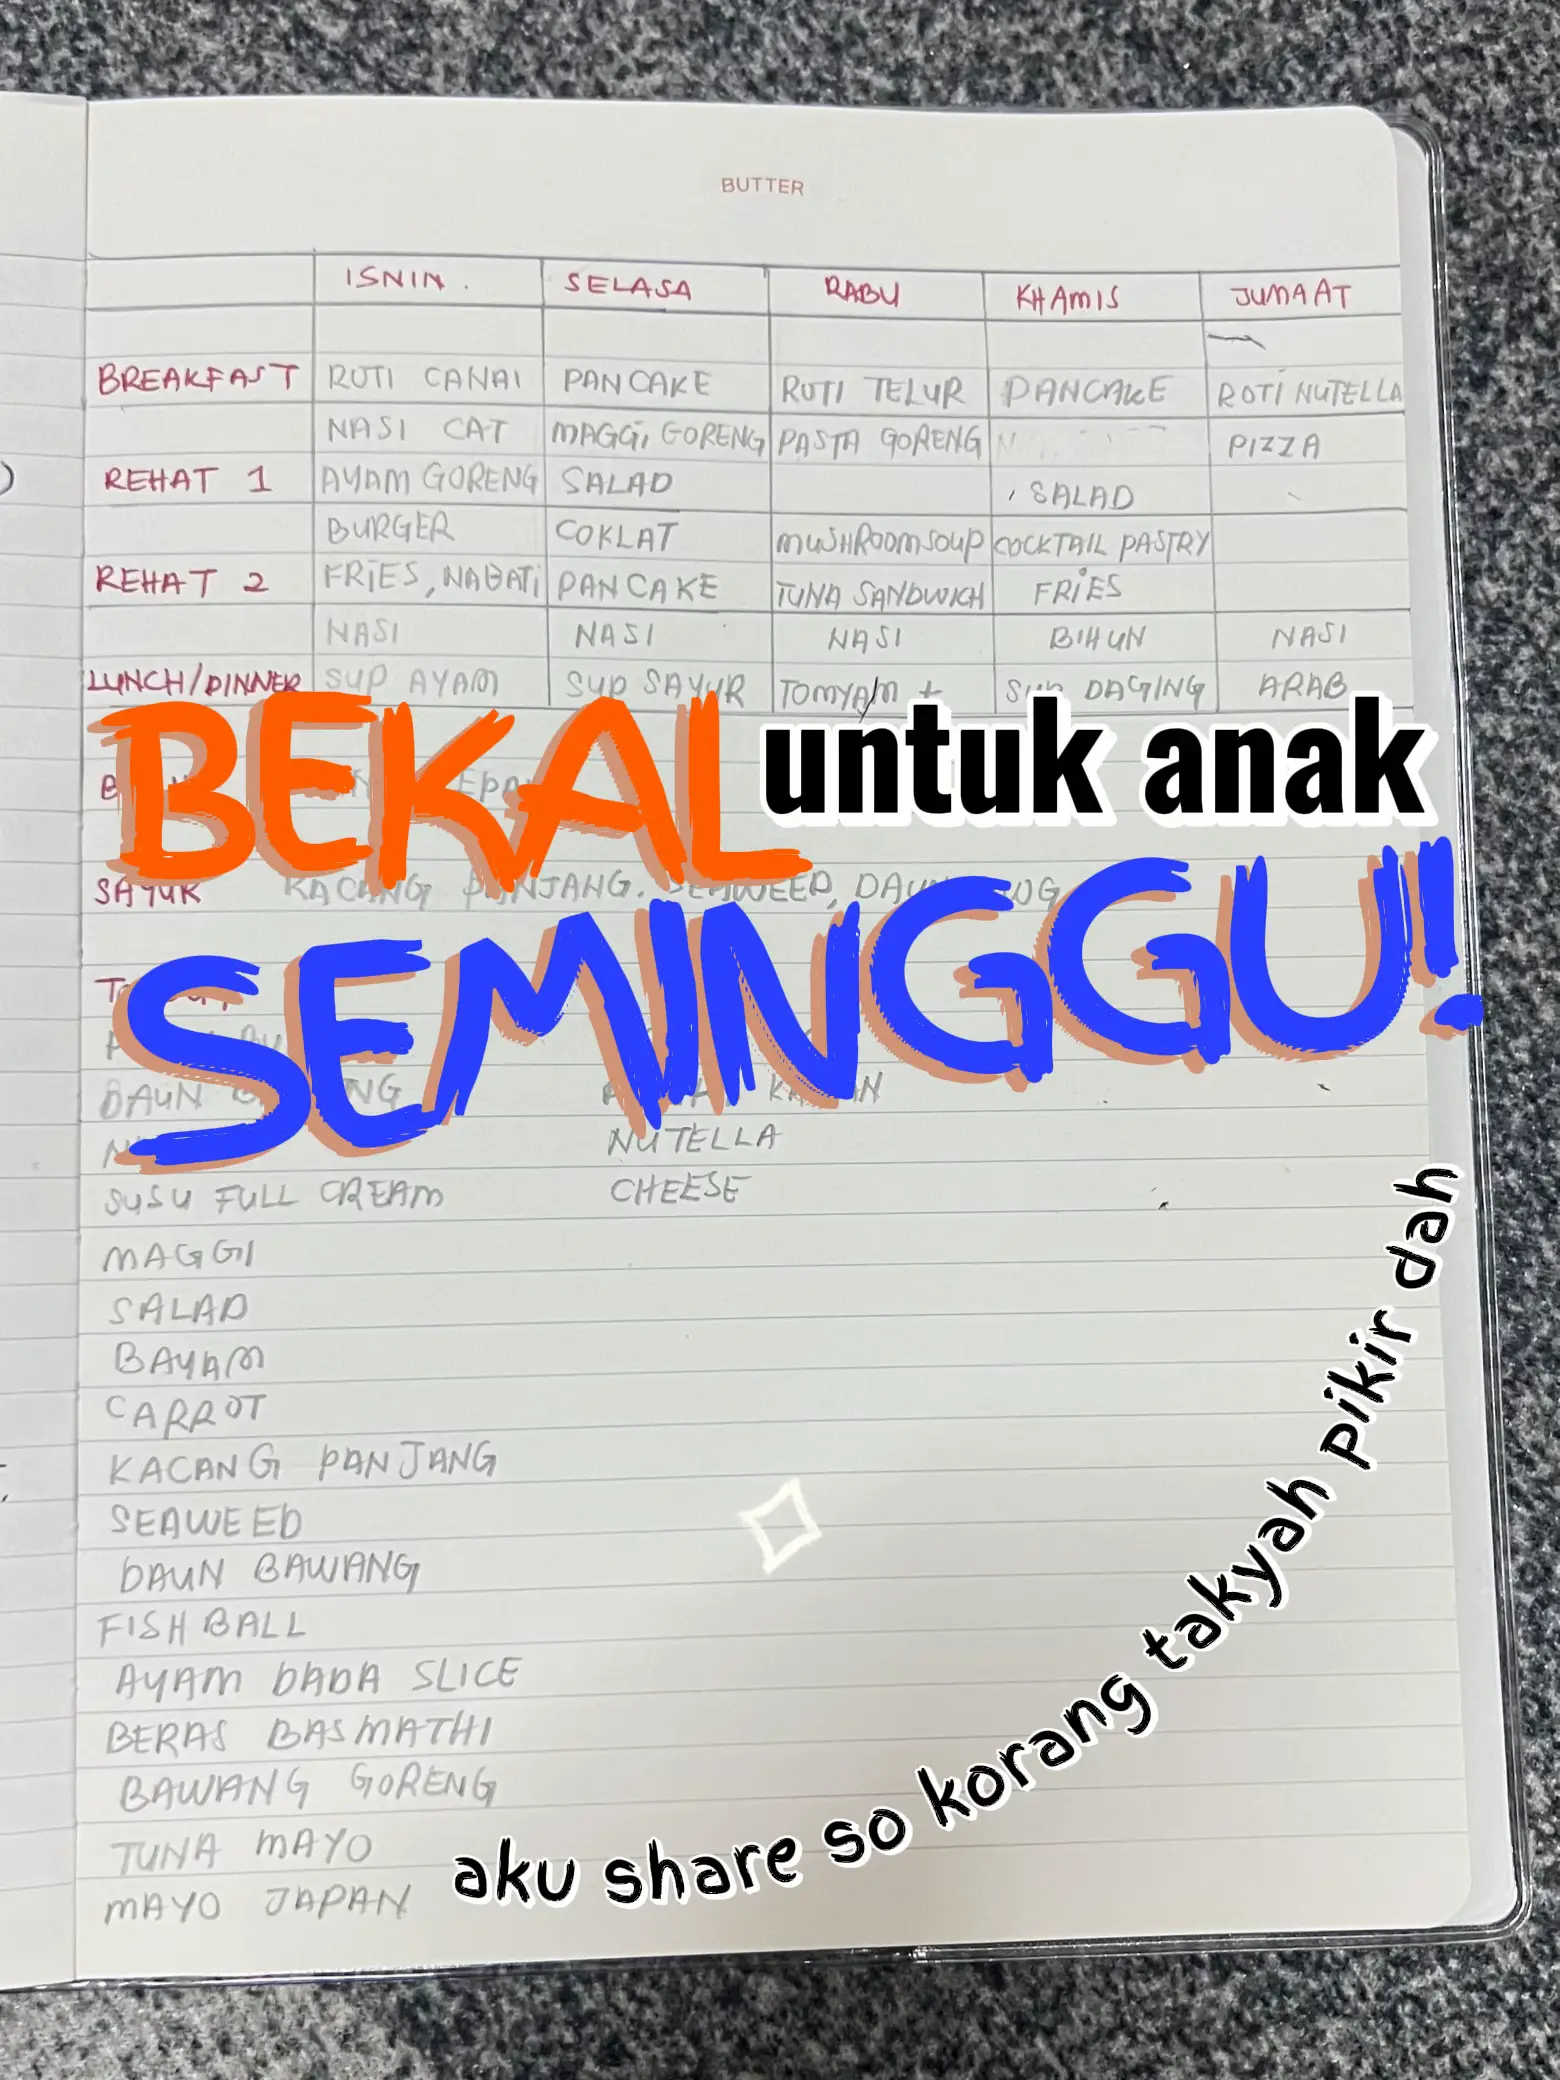 BUTTER
ISNIN. SELASA RABU KHAMIS JUMAAT
BREAKFAST ROTI CANAI PANCAKE ROTI TELUR PANCAKE ROTI NUTELLA
NASI CAT MAGGI GORENG PASTA GORENG PIZZA
REHAT 1 AYAM GORENG SALAD SALAD
BURGER COKLAT MUSHROOM SOUP COCKTAIL PASTRY
REHAT 2 FRIES, NABATI PANCAKE TUNA SANDWICH FRIES
NASI NASI NASI BIHUN NASI
LUNCH/DINNER SUP AYAM SUP SAYUR TOMYAM + SUP DAGING ARAB
BEKAL untuk anak
SAYUR KACANG PANJANG. SEAWEED, DAUN
SEMINGGU!
DAUN
NUTELLA
SUSU FULL CREAM CHEESE
MAGGI
SALAD
BAYAM
CARROT
KACANG PANJANG
SEAWEED
DAUN BAWANG
FISH BALL
AYAM DADA SLICE
BERAS BASMATHI
BAWANG GORENG
TUNA MAYO
MAYO JAPAN
aku share so korang takyah pikir dah